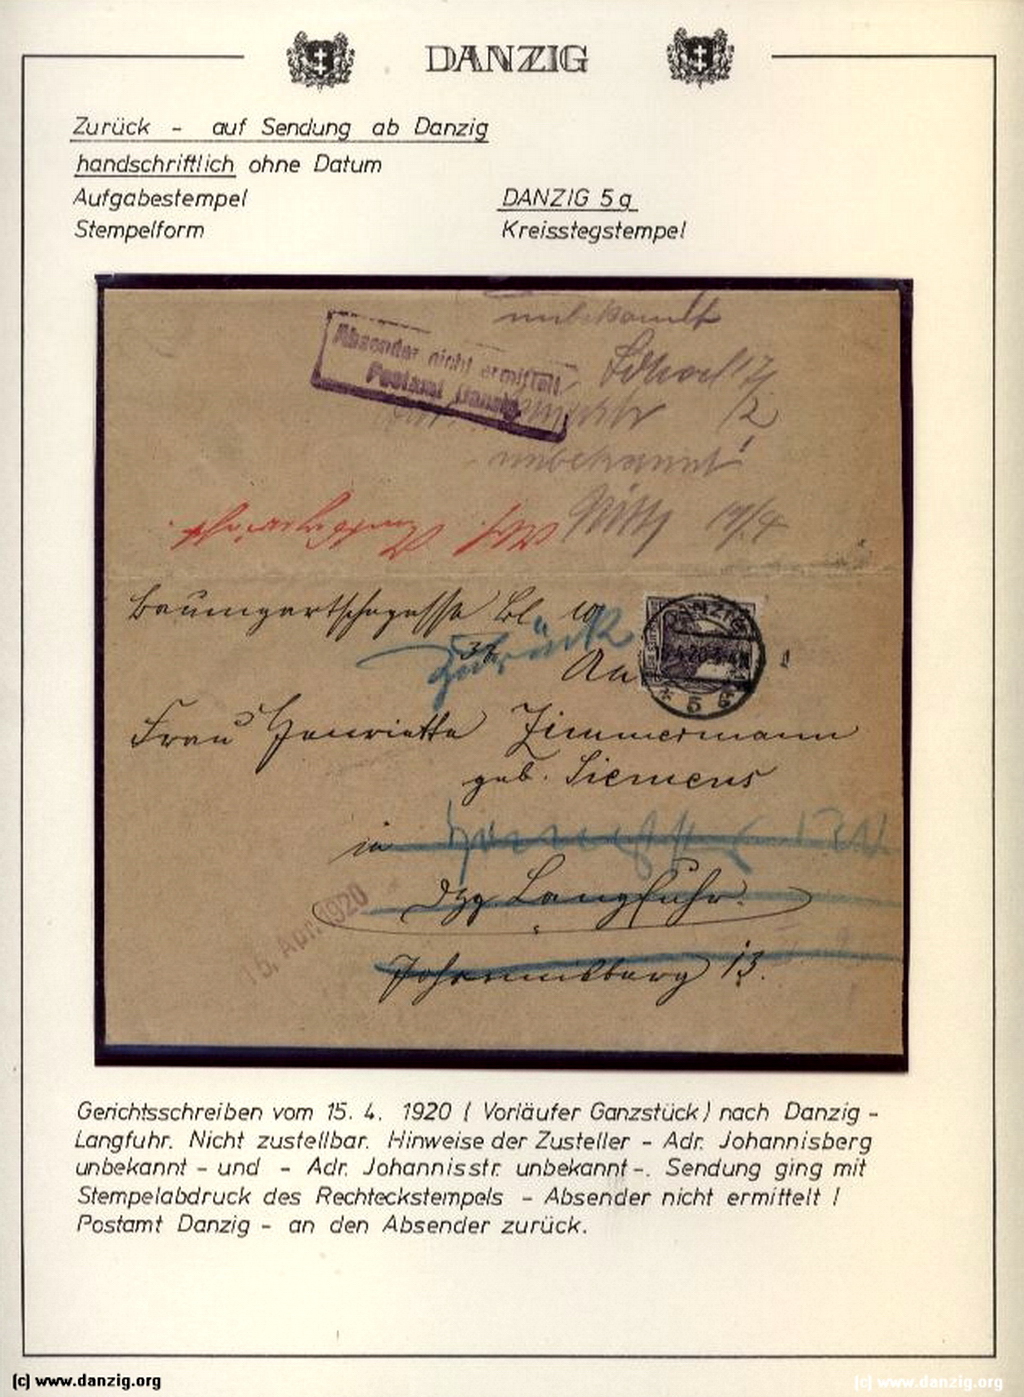 DANZIG
Zurück - auf Sendung ab Danzig
handschriftlich ohne Datum
Aufgabestempel DANZIG 5g
Stempelform Kreisstegstempel
unbekannt
Absender nicht ermittelt
Postamt Danzig.
12/
/2
unbekannt!
19/4
Baumgartschegasse Bl. 10
37
Zurück
An
DANZIG
* 5 g
Frau Henriette Zimmermann
geb. Siemens
in
Dzg Langfuhr.
Johannisberg 13.
15. Apr. 1920
Gerichtsschreiben vom 15. 4. 1920 ( Vorläufer Ganzstück) nach Danzig -
Langfuhr. Nicht zustellbar. Hinweise der Zusteller - Adr. Johannisberg
unbekannt - und - Adr. Johannisstr. unbekannt -. Sendung ging mit
Stempelabdruck des Rechteckstempels - Absender nicht ermittelt /
Postamt Danzig - an den Absender zurück.
(c) www.danzig.org (c) www.danzig.org